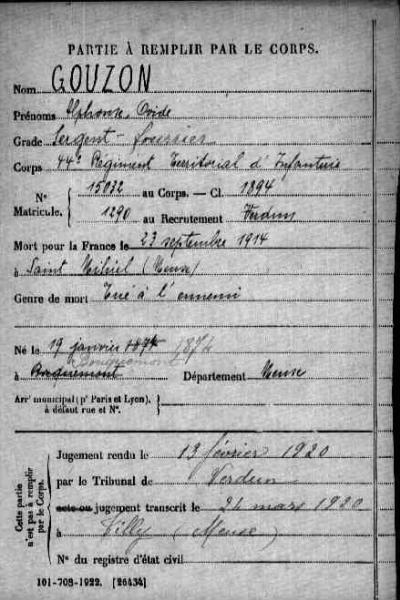 PARTIE À REMPLIR PAR LE CORPS.
Nom GOUZON
Prénoms Alphonse Ovide
Grade Sergent-fourrier
Corps 44e Régiment Territorial d'Infanterie
N° Matricule. { 15032 au Corps. — Cl. 1894
1290 au Recrutement Verdun
Mort pour la France le 23 septembre 1914
à Saint Mihiel (Meuse)
Genre de mort Tué à l'ennemi
Né le 19 janvier 1874 1874
Bouquemont
à Département Meuse
Arrt municipal (pr Paris et Lyon), à défaut rue et N°.
Cette partie n'est pas à remplir par le Corps.
Jugement rendu le 13 février 1920
par le Tribunal de Verdun
acte ou jugement transcrit le 24 mars 1920
à Tilly (Meuse)
N° du registre d'état civil
101-708-1922. [26434]